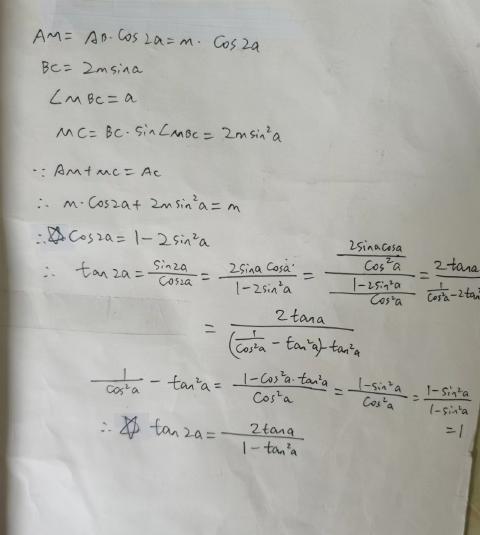 AM = AB·Cos2a = m· Cos2a
BC = 2msina
∠MBC = a
MC = BC·Sin∠MBC = 2msin²a
∵ AM+MC = AC
∴ m·Cos2a + 2msin²a = m
∴ ☆ Cos2a = 1 - 2sin²a
∴ tan2a = sin2a/Cos2a = 2sina Cosa/(1-2sin²a) = (2sina cosa/Cos²a)/((1-2sin²a)/Cos²a) = 2tana/(1/Cos²a - 2tan²
= 2tana/((1/Cos²a - tan²a) - tan²a)
1/Cos²a - tan²a = (1-Cos²a·tan²a)/Cos²a = (1-sin²a)/Cos²a = (1-sin²a)/(1-sin²a)
= 1
∴ ☆ tan2a = 2tana/(1-tan²a)